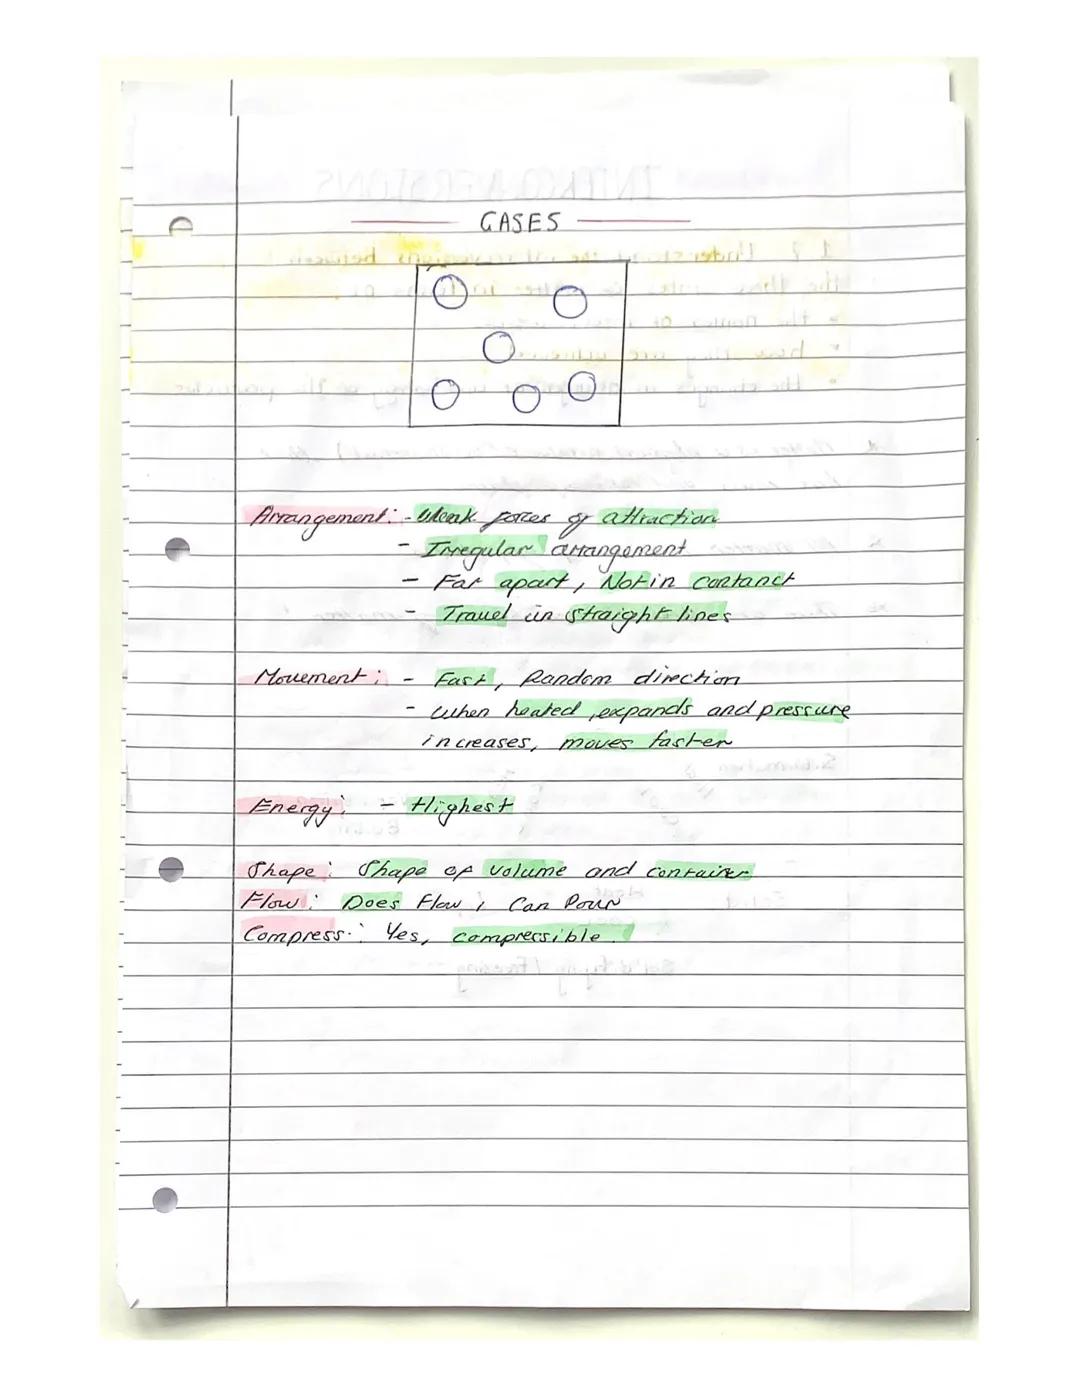 GASES
Arrangement: - Weak forces of attraction
- Irregular arrangement
- Far apart, Not in contanct
- Travel in straight lines
Movement: - Fast, Random direction
- when heated, expands and pressure
increases, moves faster
Energy: - Highest
Shape: Shape of volume and container
Flow: Does Flow, Can Pour
Compress.: Yes, compressible.